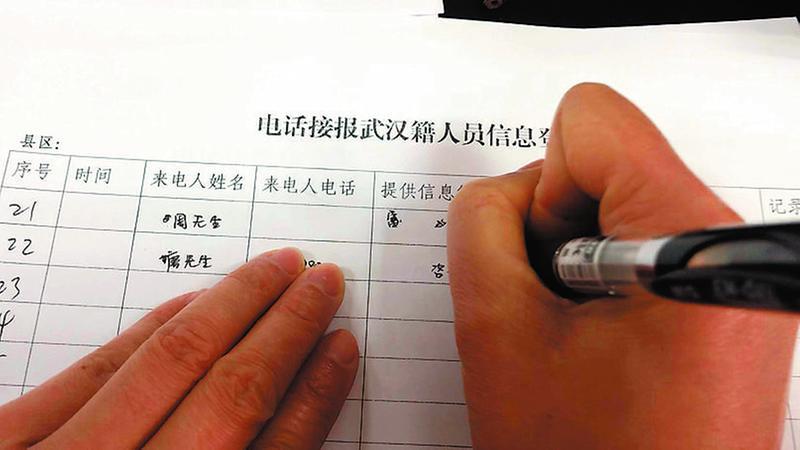 电话接报武汉籍人员信息登
县区:
序号 时间 来电人姓名 来电人电话 提供信息 记录
21 周先生
22 先生
23